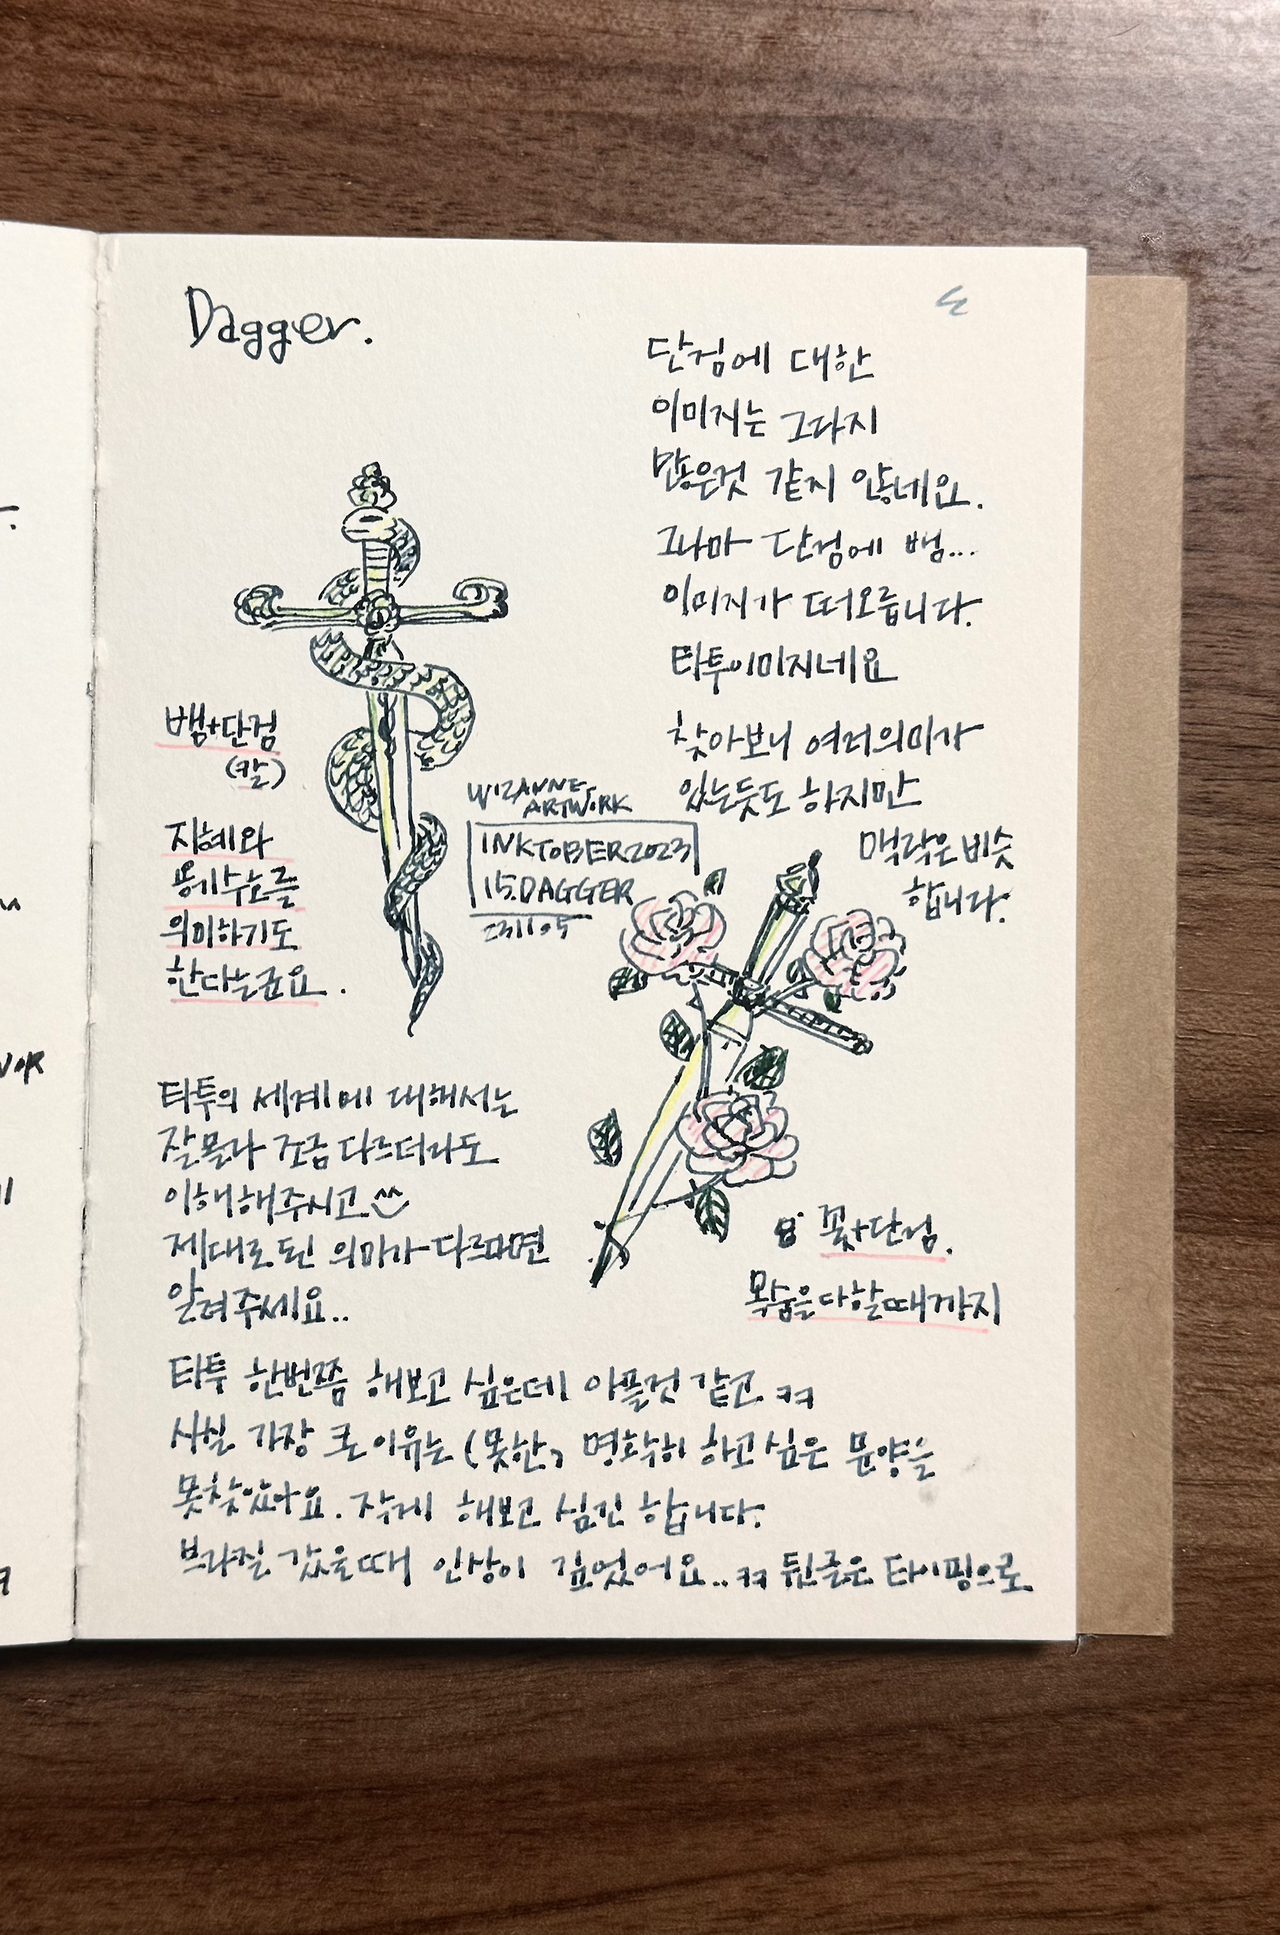 Dagger.
단검에 대한
이미지는 그다지
많은것 같지 않네요.
그나마 단검에 뱀...
이미지가 떠오릅니다.
타투이미지네요
찾아보니 여러의미가
있는듯도 하지만
맥락은 비슷
합니다.
뱀+단검
(칼)
지혜와
용기수호를
의미하기도
한다는군요.
WIZANNE
ARTWORK
INKTOBER2023
15.DAGGER
231105
타투의 세계에 대해서는
잘몰라 조금 다르더라도
이해해주시고 ^^
제대로된 의미가 다르다면
알려주세요..
꽃+단검.
목숨을다할때까지
타투 한번쯤 해보고 싶은데 아플것 같고 ㅋㅋ
사실 가장 큰 이유는 (못한, 명확히 하고싶은 문양을
못찾았아요. 작게 해보고 싶긴 합니다.
브라질 갔을때 인상이 깊었어요.. ㅋㅋ 뒷글은 타이핑으로